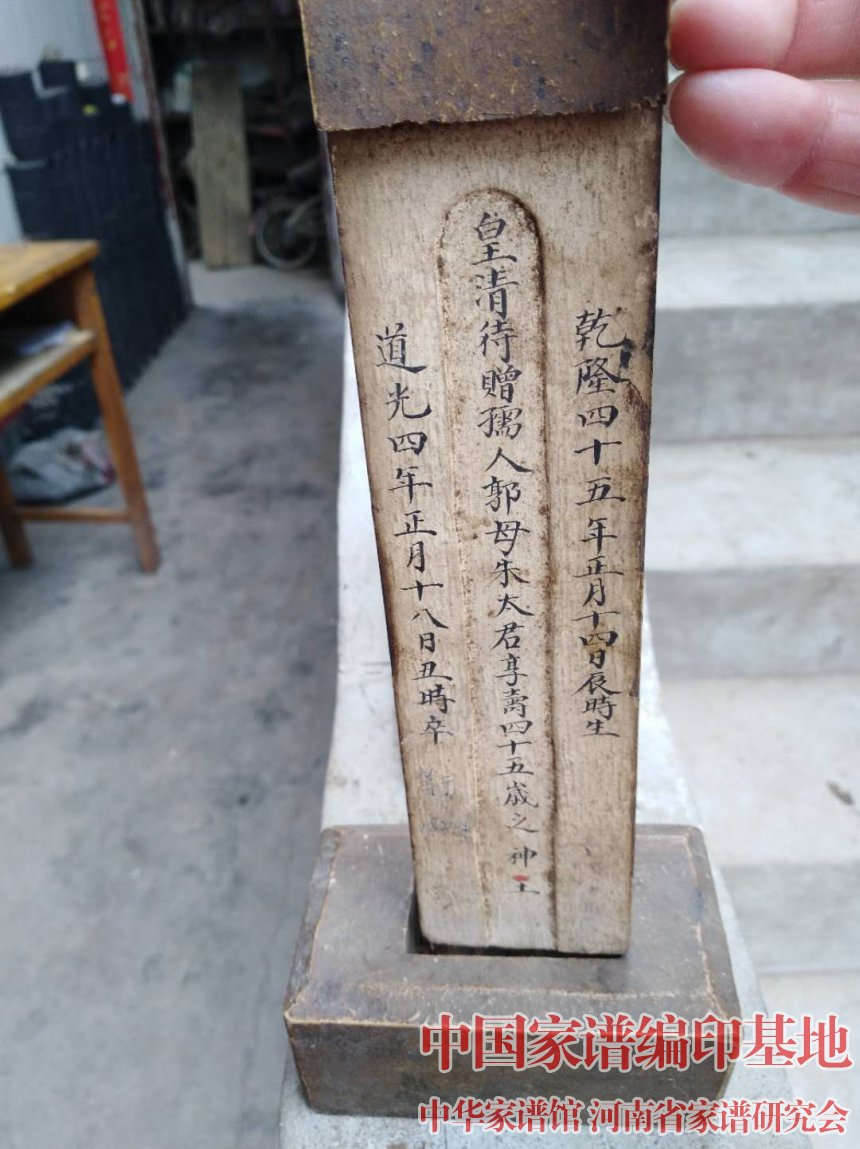 乾隆四十五年正月十四日辰時生
皇清待贈孺人郭母朱太君享壽四十五歲之神主
道光四年正月十八日丑時卒
中国家谱编印基地
中华家谱馆 河南省家谱研究会